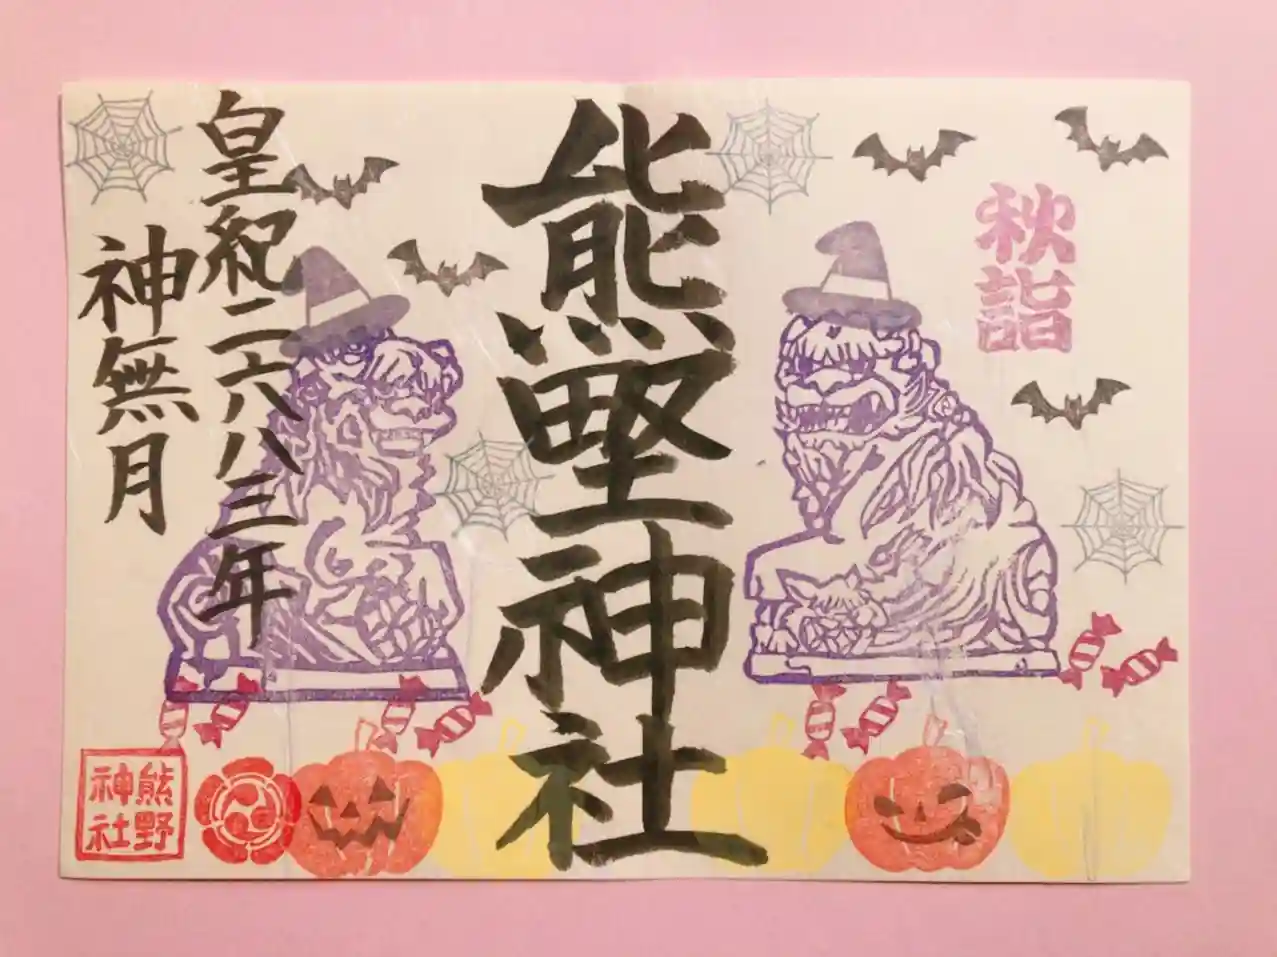 秋詣
熊野神社
皇紀二六八三年
神無月
熊野
神社